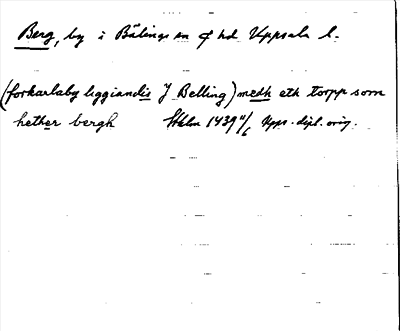 Berg, by i Bälinge sn o hd Uppsala l.
(forkarlaby liggiandis J Belling) medh eth torpp som
hether bergh Sthlm 1439 11/6 Upps. dipl. orig.